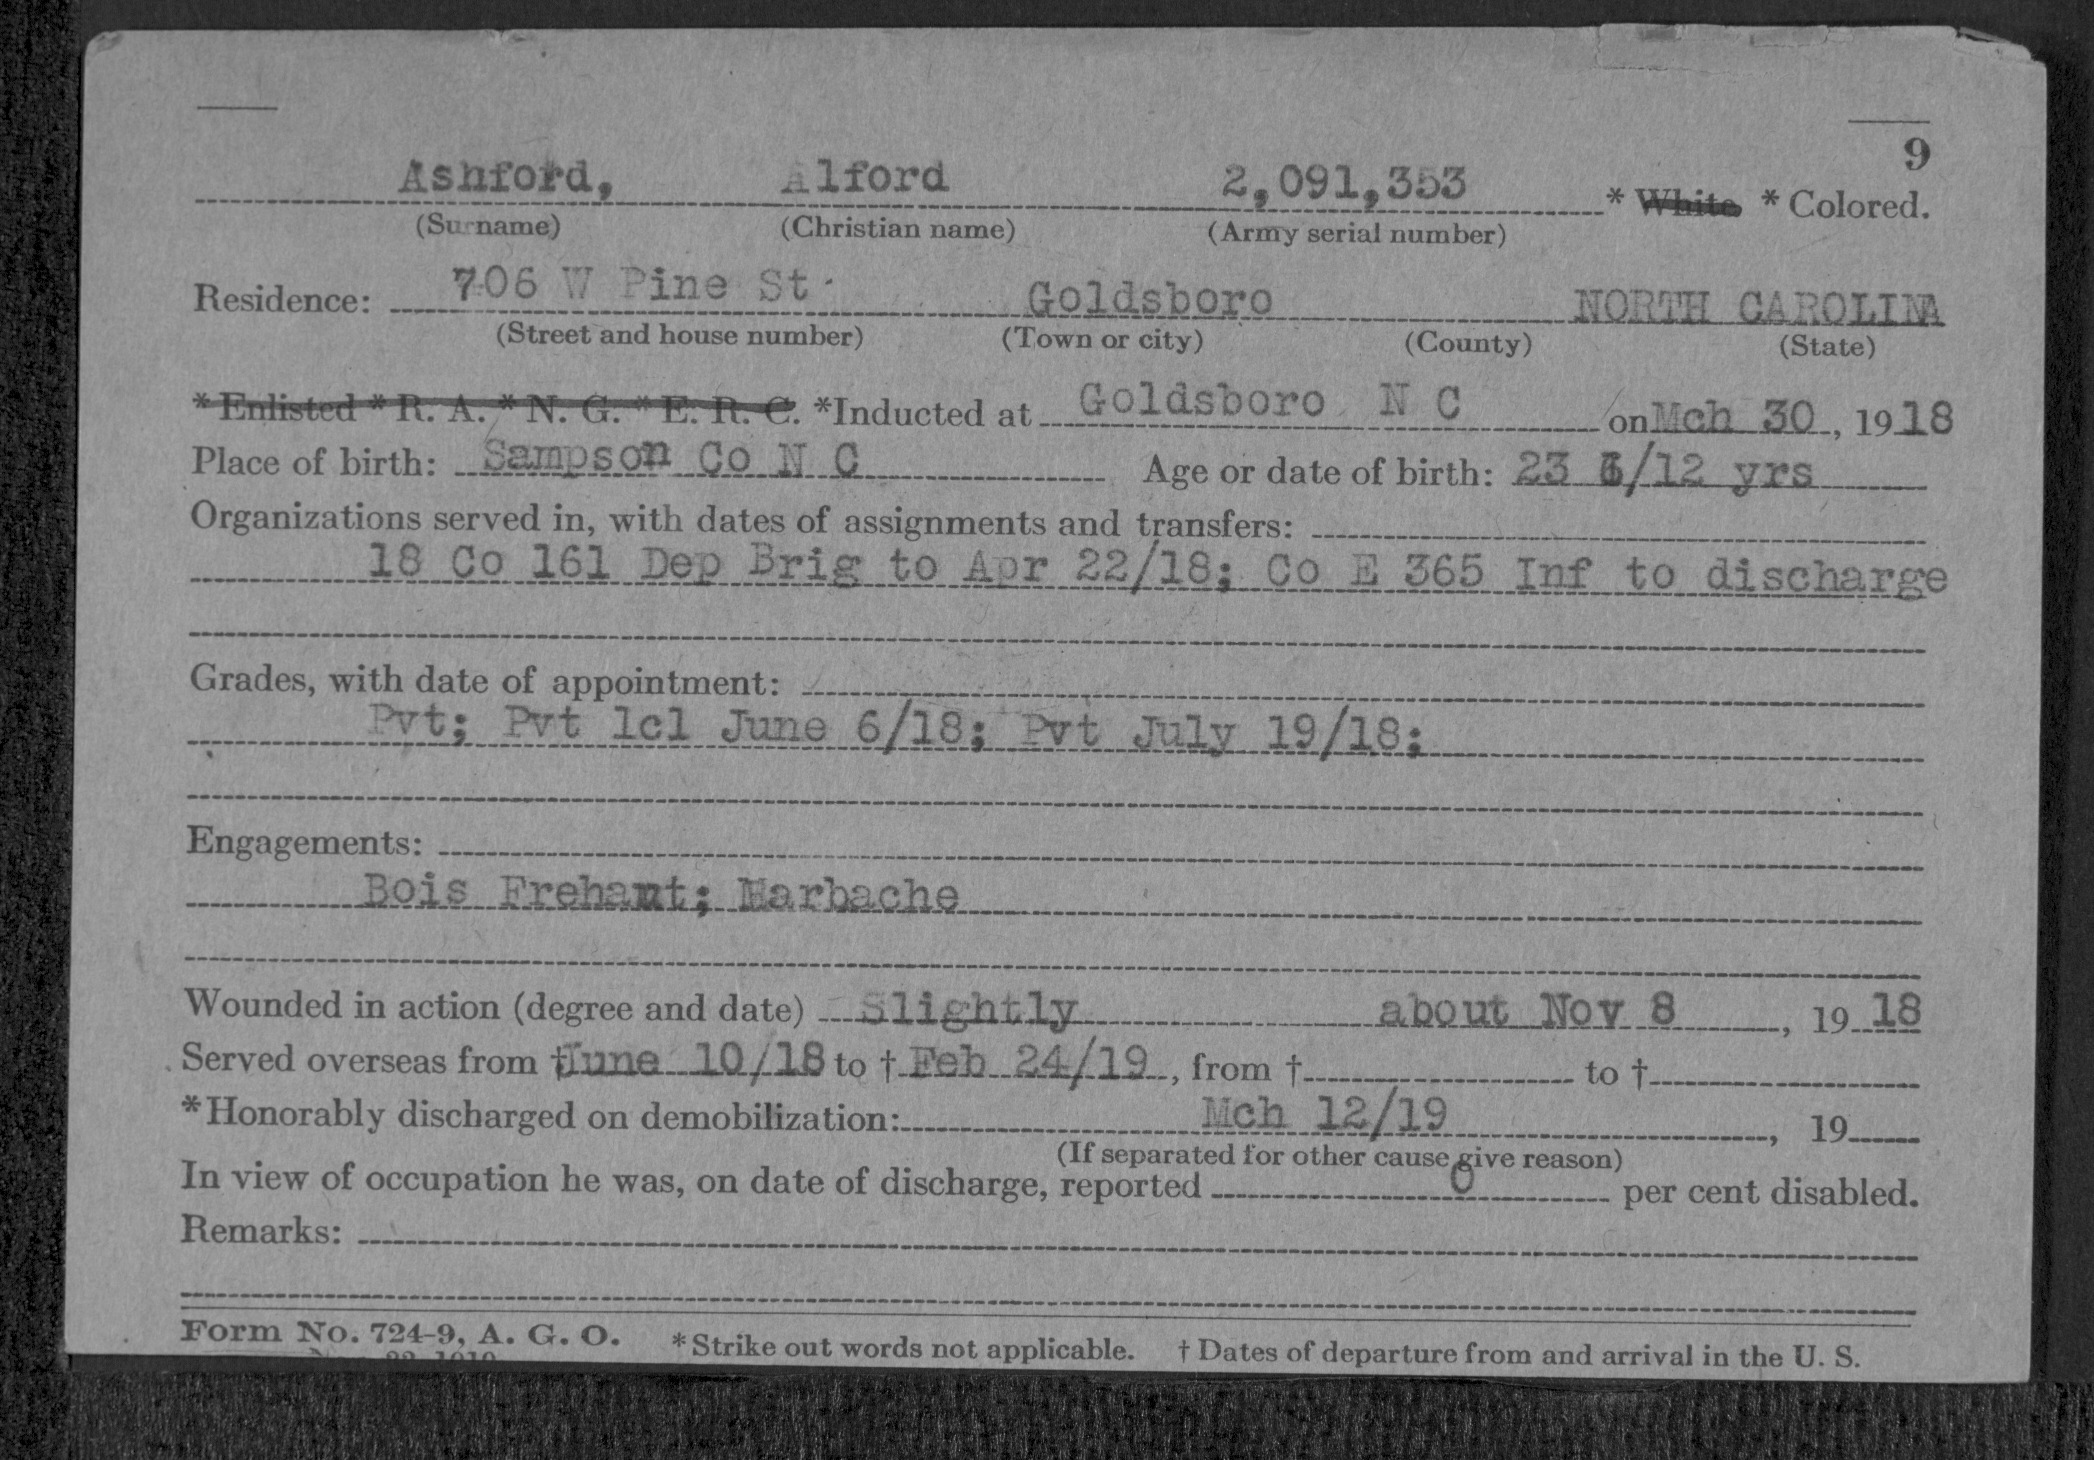 9
Ashford, Alford 2,091,353 * White * Colored.
(Surname) (Christian name) (Army serial number)
Residence: 706 W Pine St. Goldsboro NORTH CAROLINA
(Street and house number) (Town or city) (County) (State)
* Enlisted * R. A. * N. G. * E. R. C. *Inducted at Goldsboro N C on Mch 30, 1918
Place of birth: Sampson Co N C Age or date of birth: 23 /12 yrs
Organizations served in, with dates of assignments and transfers:
18 Co 161 Dep Brig to Apr 22/18; Co E 365 Inf to discharge
Grades, with date of appointment:
Pvt; Pvt 1cl June 6/18; Pvt July 19/18;
Engagements:
Bois Frehaut; Marbache
Wounded in action (degree and date) Slightly about Nov 8, 19 18
Served overseas from † June 10/18 to † Feb 24/19, from † to †
* Honorably discharged on demobilization: Mch 12/19, 19
(If separated for other cause give reason)
In view of occupation he was, on date of discharge, reported 0 per cent disabled.
Remarks:
Form No. 724-9, A. G. O. * Strike out words not applicable. † Dates of departure from and arrival in the U. S.